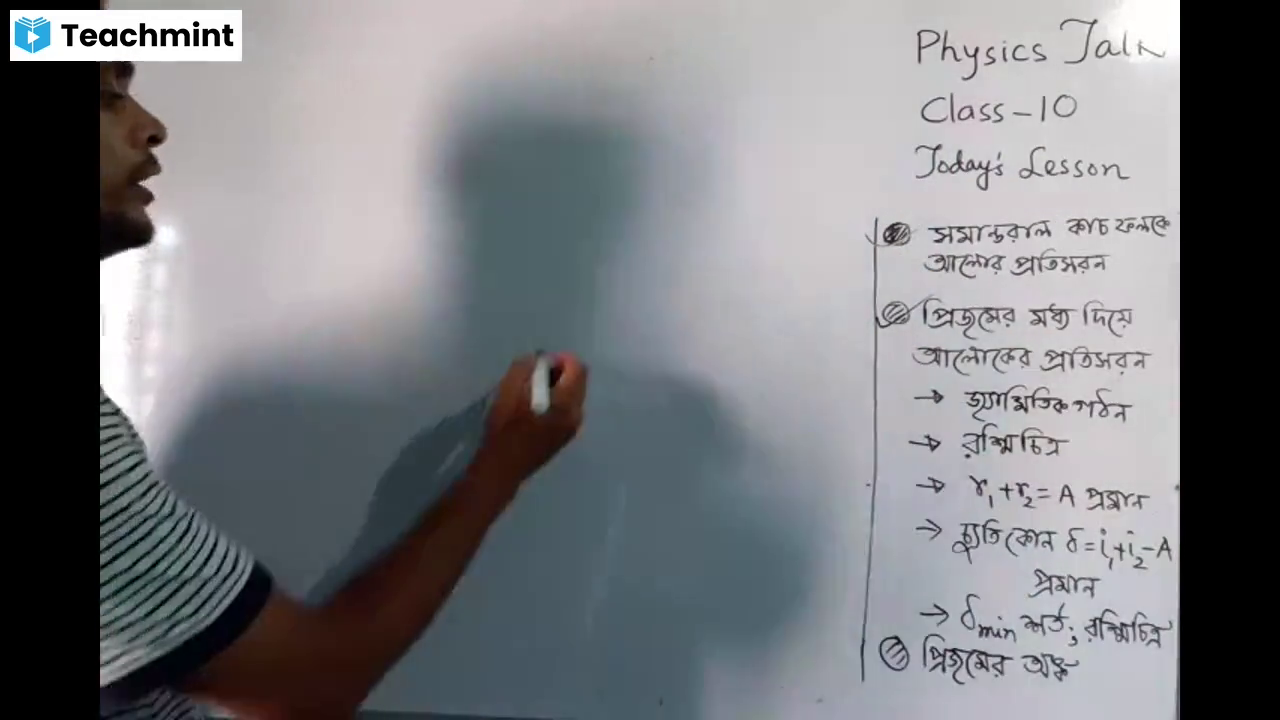 Teachmint
Physics Talk
Class-10
Today's Lesson
সমান্তরাল কাচ ফলকে
আলোর প্রতিসরন
প্রিজমের মধ্য দিয়ে
আলোকের প্রতিসরন
→ জ্যামিতিক গঠন
→ রশ্মিচিত্র
→ r₁+r₂=A প্রমান
→ চ্যুতি কোন δ=i₁+i₂-A
প্রমান
→ δmin শর্ত; রশ্মিচিত্র
প্রিজমের অঙ্ক